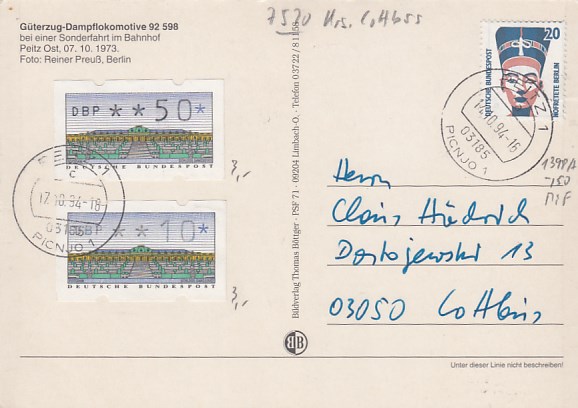 Güterzug-Dampflokomotive 92 598
bei einer Sonderfahrt im Bahnhof
Peitz Ost, 07. 10. 1973.
Foto: Reiner Preuß, Berlin
7520 Cottbus
DBP ** 50*
DEUTSCHE BUNDESPOST
3,-
** 10*
DEUTSCHE BUNDESPOST
3,-
C
17.10.94-18
03185
PICNJO 1
Bildverlag Thomas Böttger · PSF 71 · 09204 Limbach-O. · Telefon 03722/81158
BB
20
DEUTSCHE BUNDESPOST
NOFRETETE BERLIN
PEITZ 1
17.10.94-16
03185
PICNJO 1
1398A
150
MiF
Herrn
Claus
Dostojewski 13
03050 Cottbus
Unter dieser Linie nicht beschreiben!